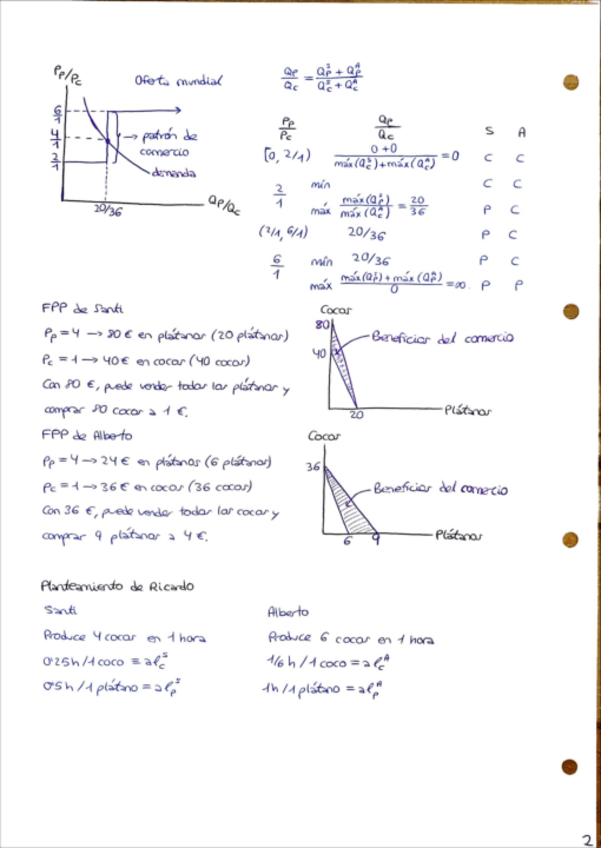 Pp/Pc
Oferta mundial
Qp/Qc = (Qp^S + Qp^A)/(Qc^S + Qc^A)
6/1
4/1
2/1
→ patrón de
comercio
demanda
20/36
Qp/Qc
Pp/Pc Qp/Qc S A
[0, 2/1) (0+0)/(máx(Qc^S)+máx(Qc^A)) = 0 C C
2/1 mín C C
máx máx(Qp^S)/máx(Qc^A) = 20/36 P C
(2/1, 6/1) 20/36 P C
6/1 mín 20/36 P C
máx (máx(Qp^S)+máx(Qp^A))/0 = ∞. P P
FPP de Santi
Pp = 4 → 80 € en plátanos (20 plátanos)
Pc = 1 → 40 € en cocos (40 cocos)
Con 80 €, puede vender todos los plátanos y
comprar 80 cocos a 1 €.
Cocos
80
40
Beneficios del comercio
20
Plátanos
FPP de Alberto
Pp = 4 → 24 € en plátanos (6 plátanos)
Pc = 1 → 36 € en cocos (36 cocos)
Con 36 €, puede vender todos los cocos y
comprar 9 plátanos a 4 €.
Cocos
36
Beneficios del comercio
6 9
Plátanos
Planteamiento de Ricardo
Santi Alberto
Produce 4 cocos en 1 hora Produce 6 cocos en 1 hora
0'25h/1 coco ≡ alc^S 1/6 h/1 coco = alc^A
0'5h/1 plátano = alp^S 1h/1 plátano = alp^A
2